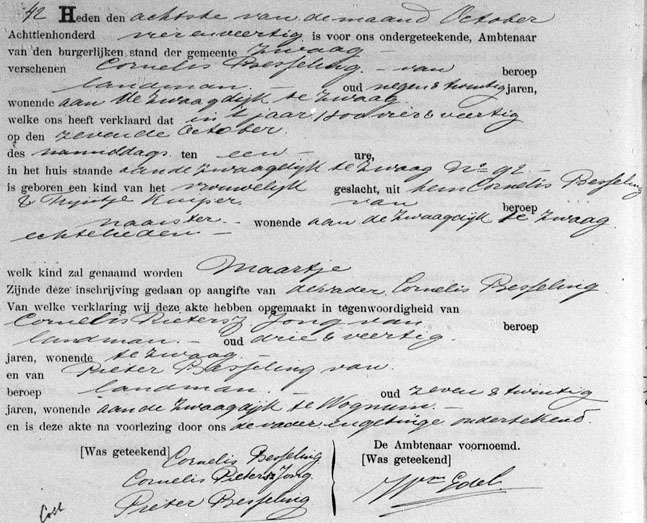 42 Heden den achtste van de maand October
Achttienhonderd vier en veertig is voor ons ondergeteekende, Ambtenaar
van den burgerlijken stand der gemeente Zwaag
verschenen Cornelis Besseling van beroep
landman oud negen & twintig jaren,
wonende aan de Zwaagdijk te Zwaag
welke ons heeft verklaard dat in 't jaar 1800 vier & veertig
op den zevende October
des namiddags ten een ure,
in het huis staande aan de Zwaagdijk te Zwaag No 92
is geboren een kind van het vrouwelijk geslacht, uit hem Cornelis Besseling
& Trijntje Kuiper van beroep
naaister wonende aan de Zwaagdijk te Zwaag
echtelieden
welk kind zal genaamd worden Maartje
Zijnde deze inschrijving gedaan op aangifte van de vader Cornelis Besseling
Van welke verklaring wij deze akte hebben opgemaakt in tegenwoordigheid van
Cornelis Pietersz Jong van beroep
landman oud drie & veertig
jaren, wonende te Zwaag
en van Pieter Besseling van
beroep landman oud zeven & twintig
jaren, wonende aan de Zwaagdijk te Wognum
en is deze akte na voorlezing door ons de vader en getuige onderteekend.
[Was geteekend] Cornelis Besseling
Cornelis Pietersz Jong
Pieter Besseling
De Ambtenaar voornoemd.
[Was geteekend]
Wm Edel
Coll